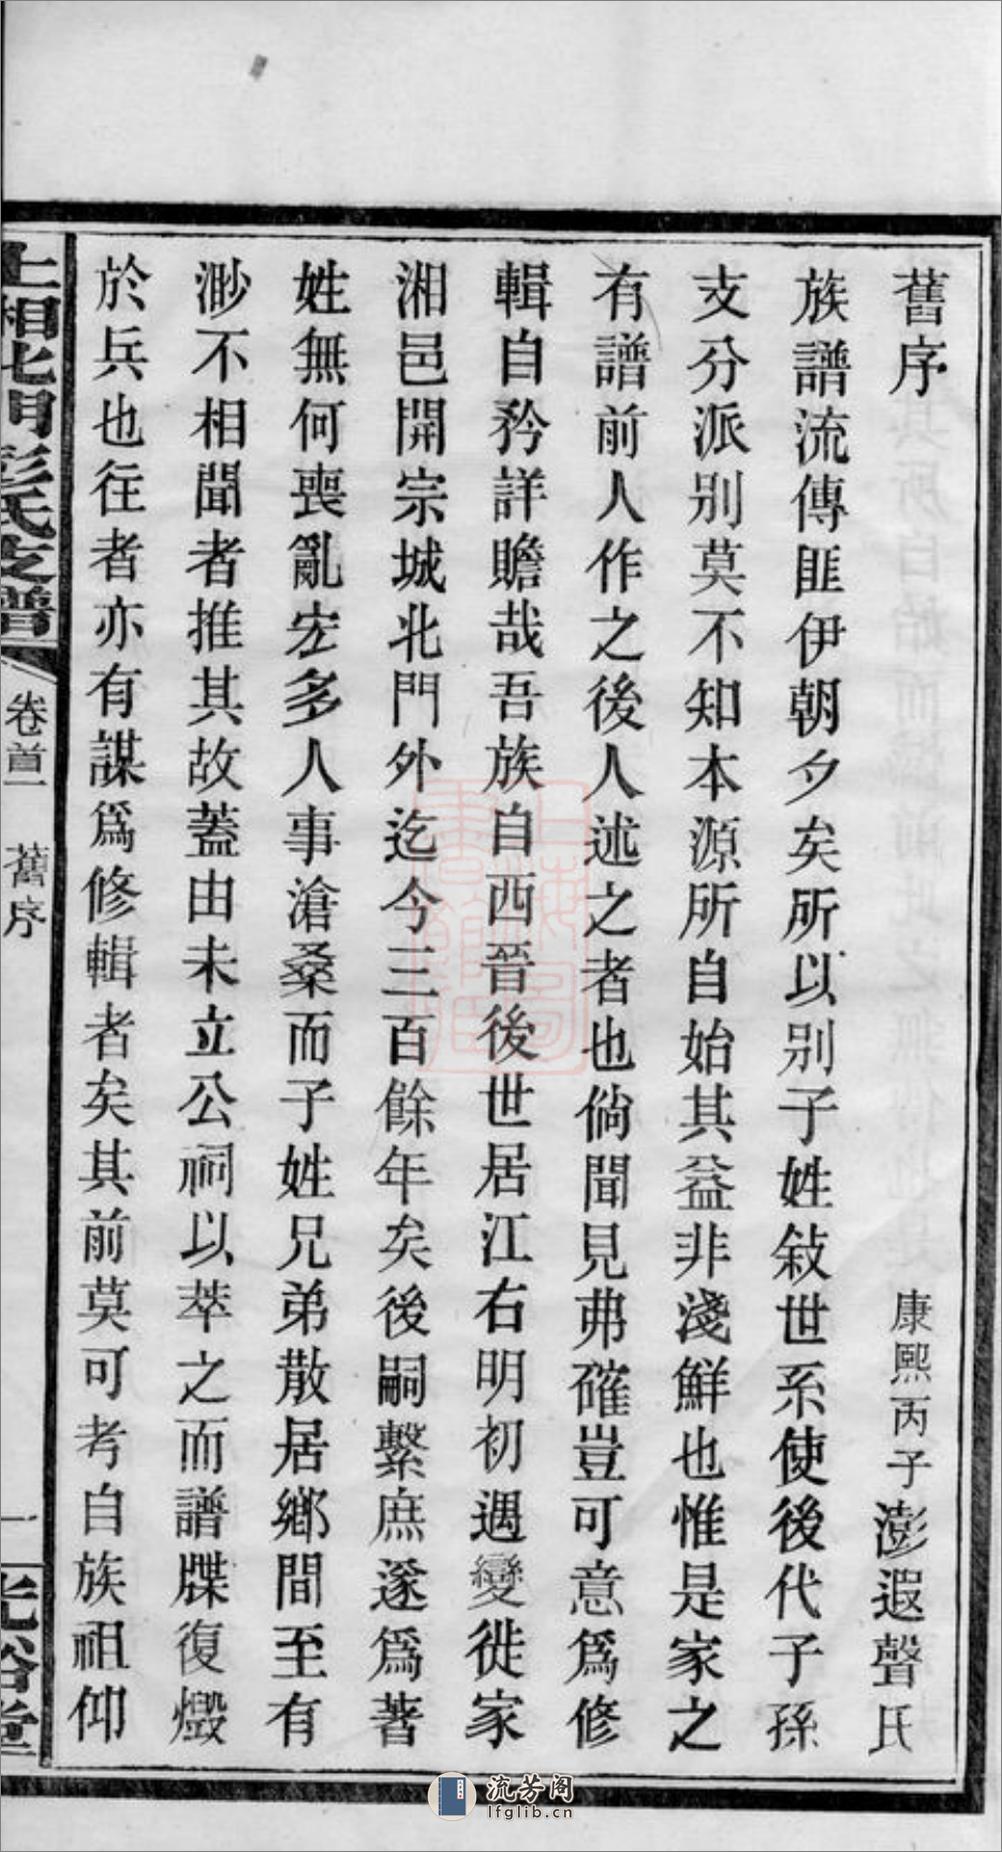 舊序
康熙丙子澎遐聲氏
族譜流傳匪伊朝夕矣所以別子姓敍世系使後代子孫
支分派別莫不知本源所自始其益非淺鮮也惟是家之
有譜前人作之後人述之者也倘聞見弗確豈可意爲修
輯自矜詳贍哉吾族自西晉後世居江右明初遇變徙家
湘邑開宗城北門外迄今三百餘年矣後嗣繫庶遂爲著
姓無何喪亂宏多人事滄桑而子姓兄弟散居鄉間至有
渺不相聞者推其故蓋由未立公祠以萃之而譜牒復燬
於兵也往者亦有謀爲修輯者矣其前莫可考自族祖仰
上湘北門彭氏支譜
卷首一
舊序
一
光裕堂
流芳阁
lfglib.cn